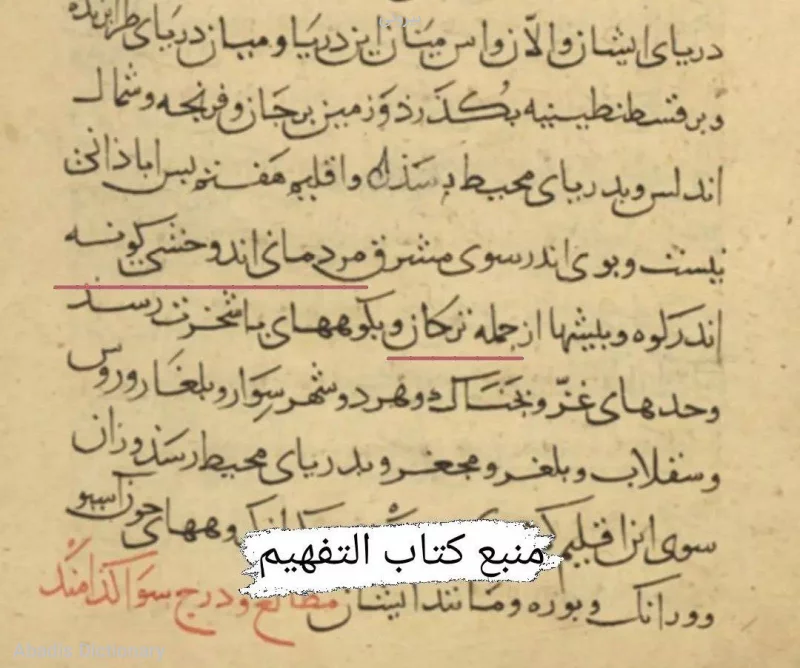 دریای ایشان والاّن واس میان این دریا ومیان دریای طرابزنده
وبر قسطنطینیه بگذرذ وزمین برجان وفرنجه وشمال
اندلس وبدریای محیط رسذ واقلیم هفتم بس اباذانی
نیست وبوی اندر سوی مشرق مردمانی اند وحشی گونه
اندر کوه وبیشها از جمله ترکان وبکوههای باشخرت رسد
وحدهای غزّ وبجناک ودو شهر سوار وبلغار وروس
وسقلاب وبلغر ومجغر وبدریای محیط رسذ وزان
سوی این اقلیم چون ایسو
وورانک ویوره ومانند ایشان مطالع ودرج سوا کدامند
منبع کتاب التفهیم
Abadis Dictionary